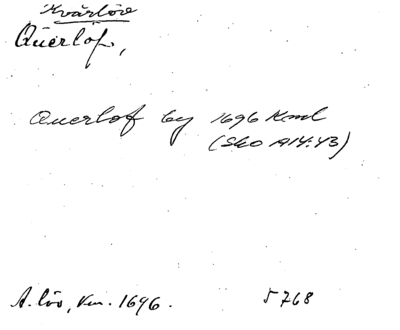 Kvärlöv
Querlöf,
Querlof by 1696 Kml
(Sko A14:43)
A. löv, Km. 1696. 5768